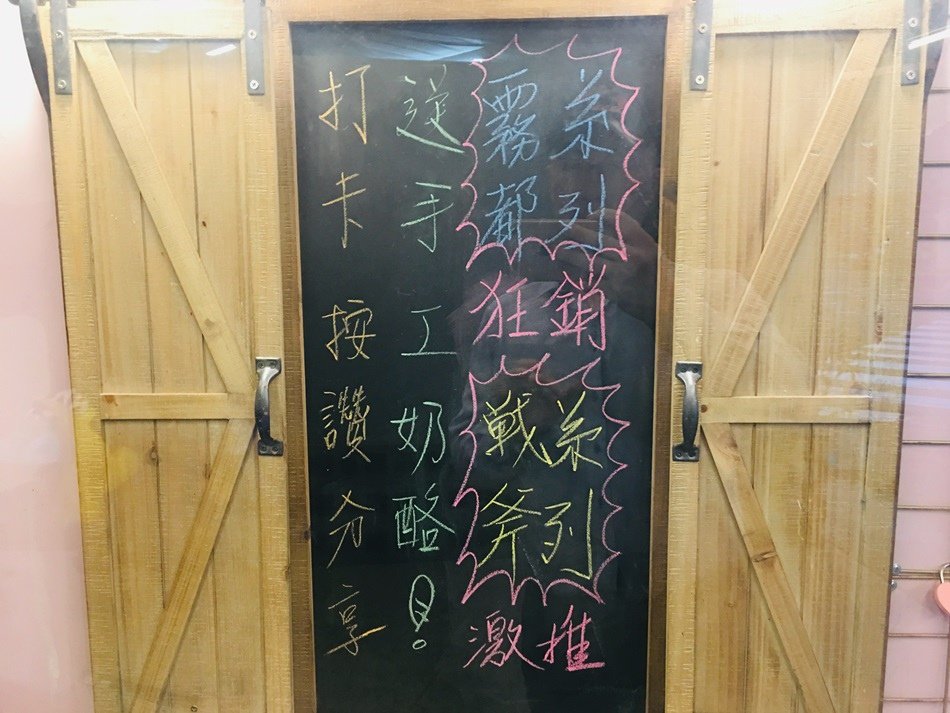 打卡按讚分享
送手工奶酪!
霧都
系列
狂銷
戦斧
系列
激推